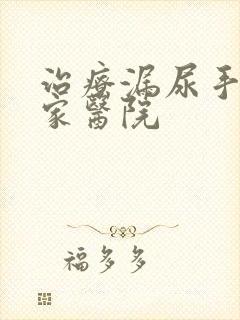 治療漏尿手
家醫院
福多多